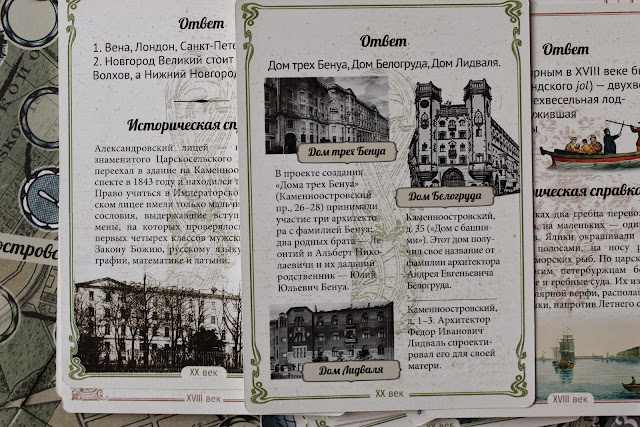 Ответ
1. Вена, Лондон, Санкт-Пете
2. Новгород Великий стоит
Волхов, а Нижний Новгород
Историческая сп
Александровский лицей
знаменитого Царскосельского
переехал в здание на Каменно
спекте в 1843 году и находился т
Право учиться в Императорско
ском лицее имели только мальч
сословия, выдержавшие вступ
мены, на которых проверялос
первых четырех классов мужск
Закону Божию, русскому языку
графии, математике и латыни.
XX век
XVIII век
Ответ
Дом трех Бенуа, Дом Белогруда, Дом Лидваля.
Дом трех Бенуа
В проекте создания
«Дома трех Бенуа»
(Каменноостровский
пр., 26–28) принимали
участие три архитекто-
ра с фамилией Бенуа:
два родных брата — Ле-
онтий и Альберт Нико-
лаевичи и их дальний
родственник — Юлий
Юльевич Бенуа.
Дом Белогруда
Каменноостровский,
д. 35 («Дом с башня-
ми»). Этот дом полу-
чил свое название от
фамилии архитектора
Андрея Евгеньевича
Белогруда.
Дом Лидваля
Каменноостровский,
д. 1–3. Архитектор
Федор Иванович
Лидваль спроекти-
ровал его для своей
матери.
XX век
Ответ
ярным в XVIII веке б
ндского jol) — двухве
ехвесельная лод-
жившая
ы
ическая справка
ках два гребца перево
, на маленьких — один
. Ялики окрашивали
полосами, на носу
морских рыб. По царск
гим петербуржцам б
е и гребные суда. Их из
лярной верфи, распола
ки, напротив Летнего с
XVIII век
острово